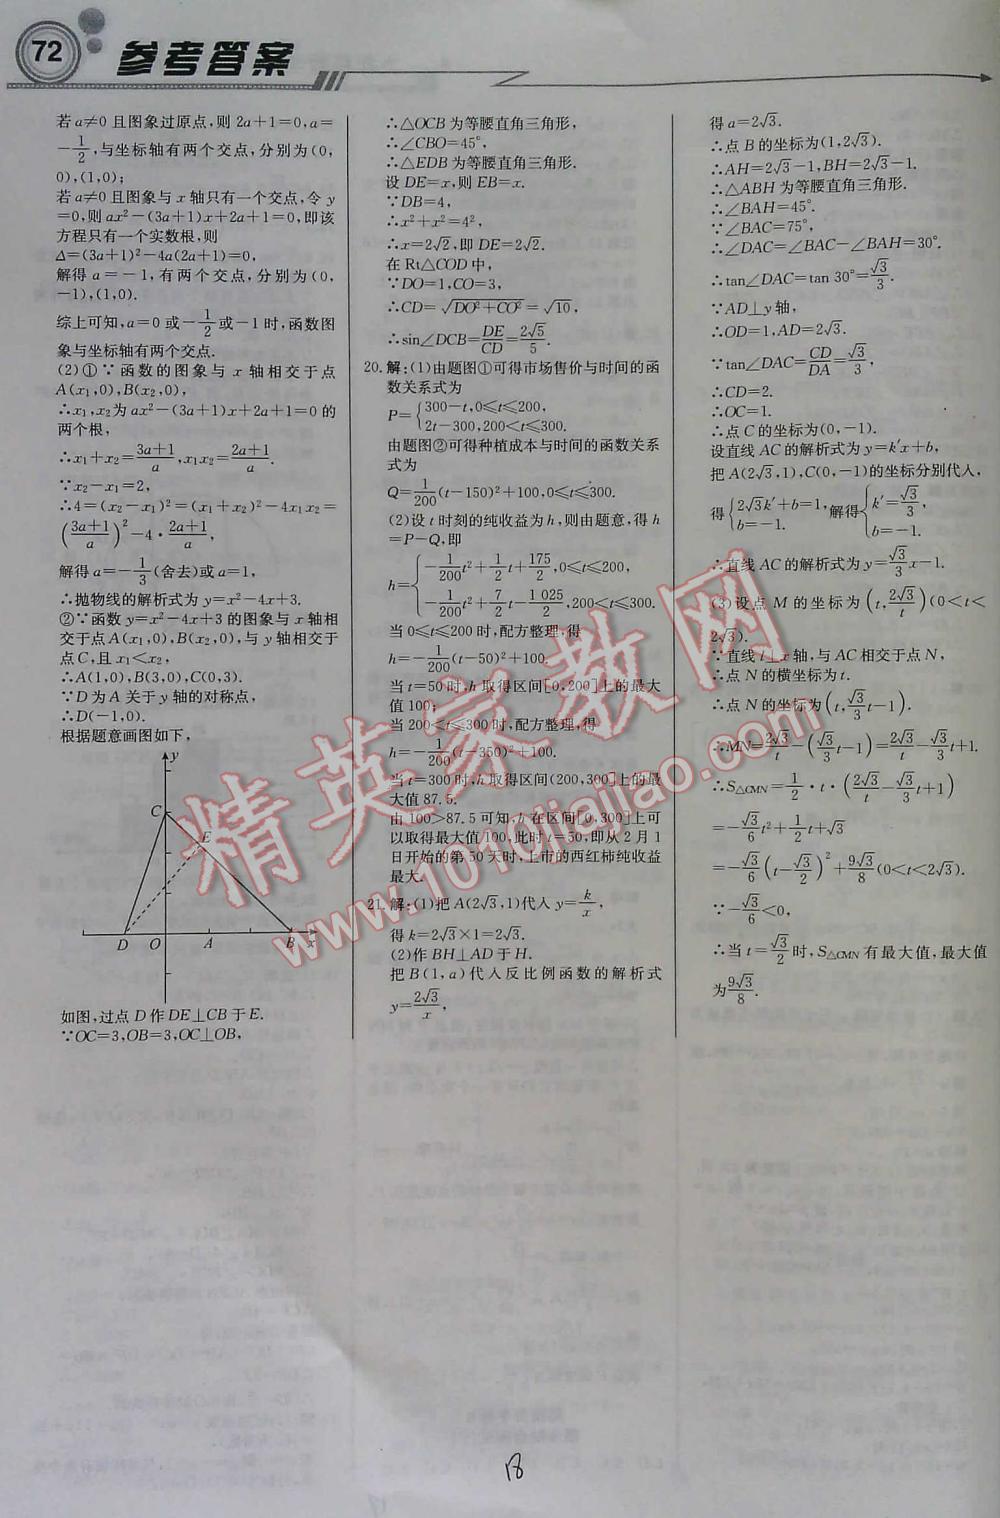 72
参考答案
若a≠0且图象过原点,则2a+1=0,a=
-1/2,与坐标轴有两个交点,分别为(0,
0),(1,0);
若a≠0且图象与x轴只有一个交点,令y
=0,则ax²-(3a+1)x+2a+1=0,即该
方程只有一个实数根,则
Δ=(3a+1)²-4a(2a+1)=0,
解得a=-1,有两个交点,分别为(0,
-1),(1,0).
综上可知,a=0或-1/2或-1时,函数图
象与坐标轴有两个交点.
(2)①∵函数的图象与x轴相交于点
A(x₁,0),B(x₂,0),
∴x₁,x₂为ax²-(3a+1)x+2a+1=0的
两个根,
∴x₁+x₂=(3a+1)/a,x₁x₂=(2a+1)/a.
∵x₂-x₁=2,
∴4=(x₂-x₁)²=(x₁+x₂)²-4x₁x₂=
((3a+1)/a)²-4·(2a+1)/a,
解得a=-1/3(舍去)或a=1,
∴抛物线的解析式为y=x²-4x+3.
②∵函数y=x²-4x+3的图象与x轴相
交于点A(x₁,0),B(x₂,0),与y轴相交于
点C,且x₁<x₂,
∴A(1,0),B(3,0),C(0,3).
∵D为A关于y轴的对称点,
∴D(-1,0).
根据题意画图如下,
y
C
E
D O A B x
如图,过点D作DE⊥CB于E.
∵OC=3,OB=3,OC⊥OB,
∴△OCB为等腰直角三角形,
∴∠CBO=45°,
∴△EDB为等腰直角三角形.
设DE=x,则EB=x.
∵DB=4,
∴x²+x²=4²,
∴x=2√2,即DE=2√2.
在Rt△COD中,
∵DO=1,CO=3,
∴CD=√(DO²+CO²)=√10,
∴sin∠DCB=DE/CD=2√5/5.
20.解:(1)由题图①可得市场售价与时间的函
数关系式为
P={300-t,0≤t≤200,
2t-300,200<t≤300.
由题图②可得种植成本与时间的函数关系
式为
Q=1/200(t-150)²+100,0≤t≤300.
(2)设t时刻的纯收益为h,则由题意,得h
=P-Q,即
h={-1/200t²+1/2t+175/2,0≤t≤200,
-1/200t²+7/2t-1 025/2,200<t≤300.
当0≤t≤200时,配方整理,得
h=-1/200(t-50)²+100.
当t=50时,h取得区间[0,200]上的最大
值100;
当200<t≤300时,配方整理,得
h=-1/200(t-350)²+100.
当t=300时,h取得区间(200,300]上的最
大值87.5.
由100>87.5可知,h在区间[0,300]上可
以取得最大值100,此时t=50,即从2月1
日开始的第50天时,上市的西红柿纯收益
最大.
21.解:(1)把A(2√3,1)代入y=k/x,
得k=2√3×1=2√3.
(2)作BH⊥AD于H.
把B(1,a)代入反比例函数的解析式
y=2√3/x,
得a=2√3.
∴点B的坐标为(1,2√3).
∴AH=2√3-1,BH=2√3-1.
∴△ABH为等腰直角三角形.
∴∠BAH=45°.
∵∠BAC=75°,
∴∠DAC=∠BAC-∠BAH=30°.
∴tan∠DAC=tan 30°=√3/3.
∵AD⊥y轴,
∴OD=1,AD=2√3.
∵tan∠DAC=CD/DA=√3/3,
∴CD=2.
∴OC=1.
∴点C的坐标为(0,-1).
设直线AC的解析式为y=k′x+b,
把A(2√3,1),C(0,-1)的坐标分别代入,
得{2√3k′+b=1,b=-1.解得{k′=√3/3,b=-1.
∴直线AC的解析式为y=√3/3x-1.
(3)设点M的坐标为(t,2√3/t)(0<t<
2√3).
∵直线l⊥x轴,与AC相交于点N,
∴点N的横坐标为t.
∴点N的坐标为(t,√3/3t-1).
∴MN=2√3/t-(√3/3t-1)=2√3/t-√3/3t+1.
∴S△CMN=1/2·t·(2√3/t-√3/3t+1)
=-√3/6t²+1/2t+√3
=-√3/6(t-√3/2)²+9√3/8(0<t<2√3).
∵-√3/6<0,
∴当t=√3/2时,S△CMN有最大值,最大值
为9√3/8.
精英家教网
www.1010jiajiao.com
18